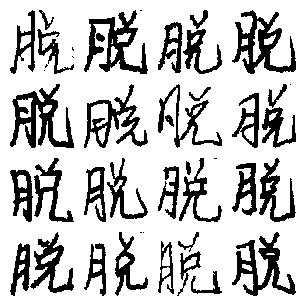 脱脱脱脱
脱脱脱脱
脱脱脱脱
脱脱脱脱